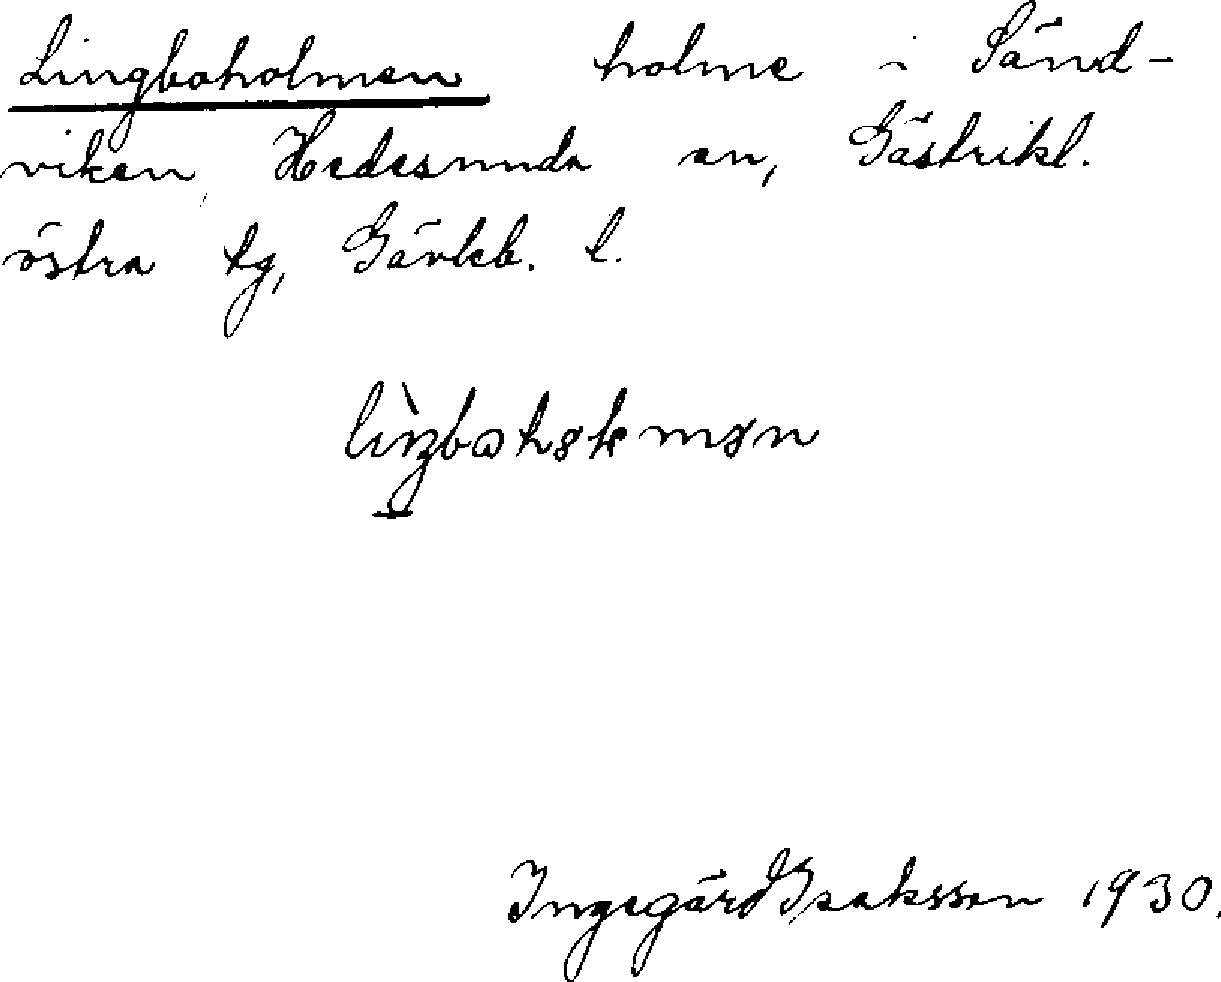 Lingboholmen holme i Sänd-
viken, Hedesunda sn, Gästrikl.
östra tg, Gävleb. l.
Ingegärd Isaksson 1930.